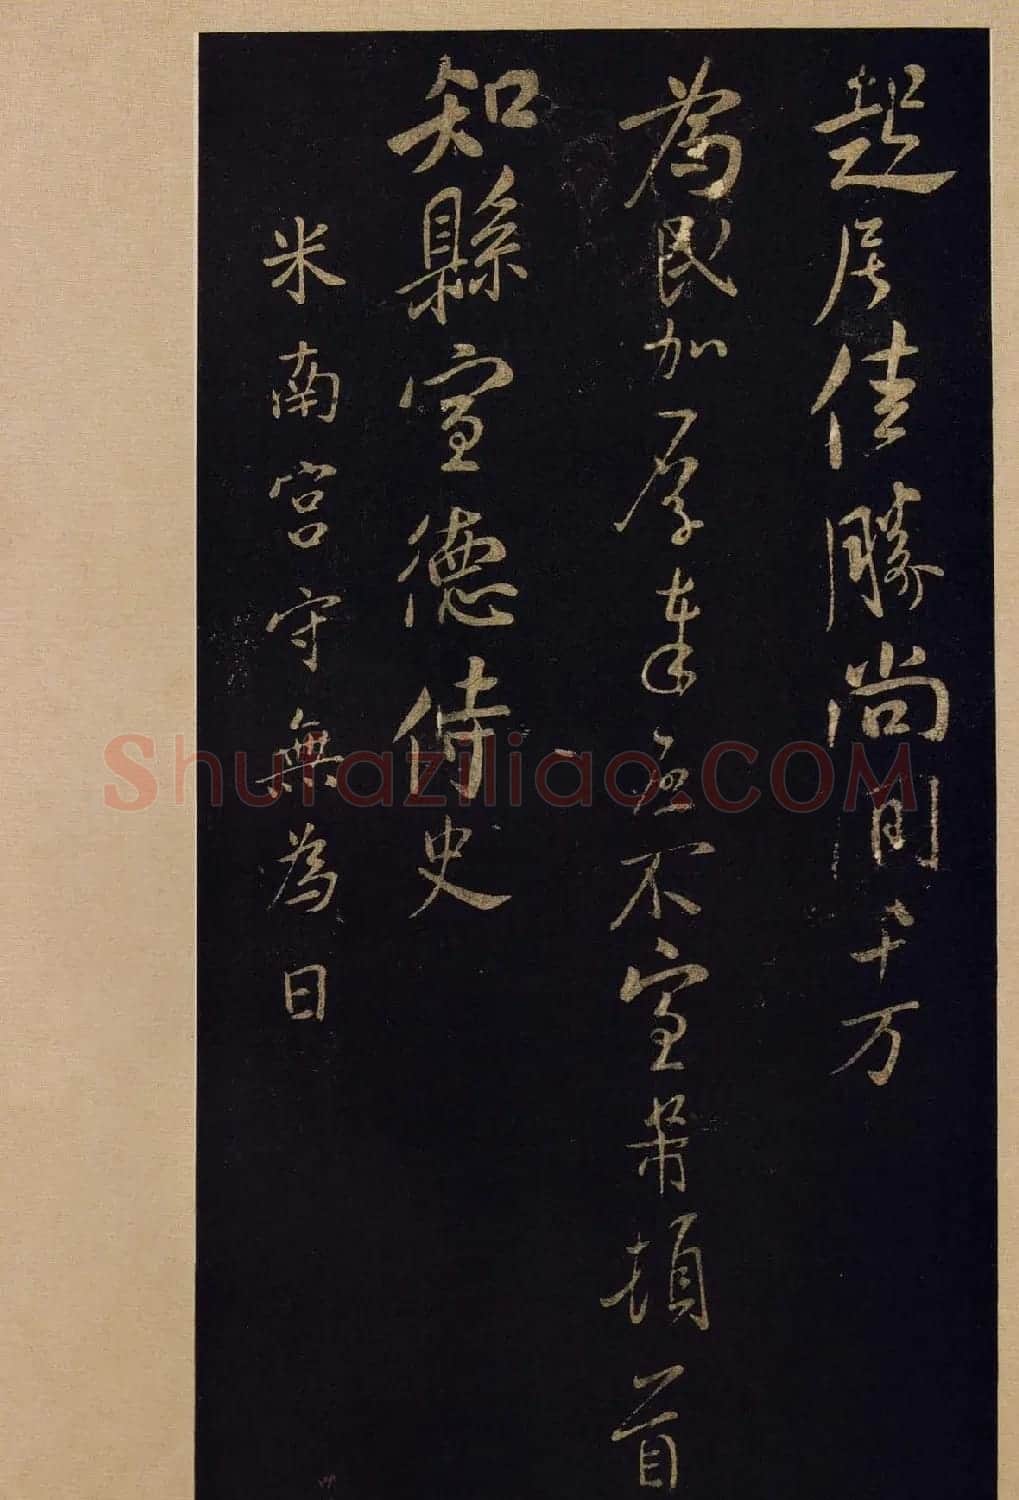 起居佳勝尚間千万
為民加厚奉無不宣芾頓首
知縣宣德侍史
米南宮守無為日
Shufaziliao.COM